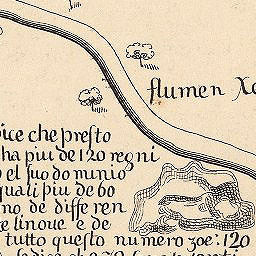 flumen Xo
ice che presto
ha piu de 120 regni
o el suo do minio
quali piu de 60
no de diffe ren
te lingue e de
tutto questo numero zoe: 120